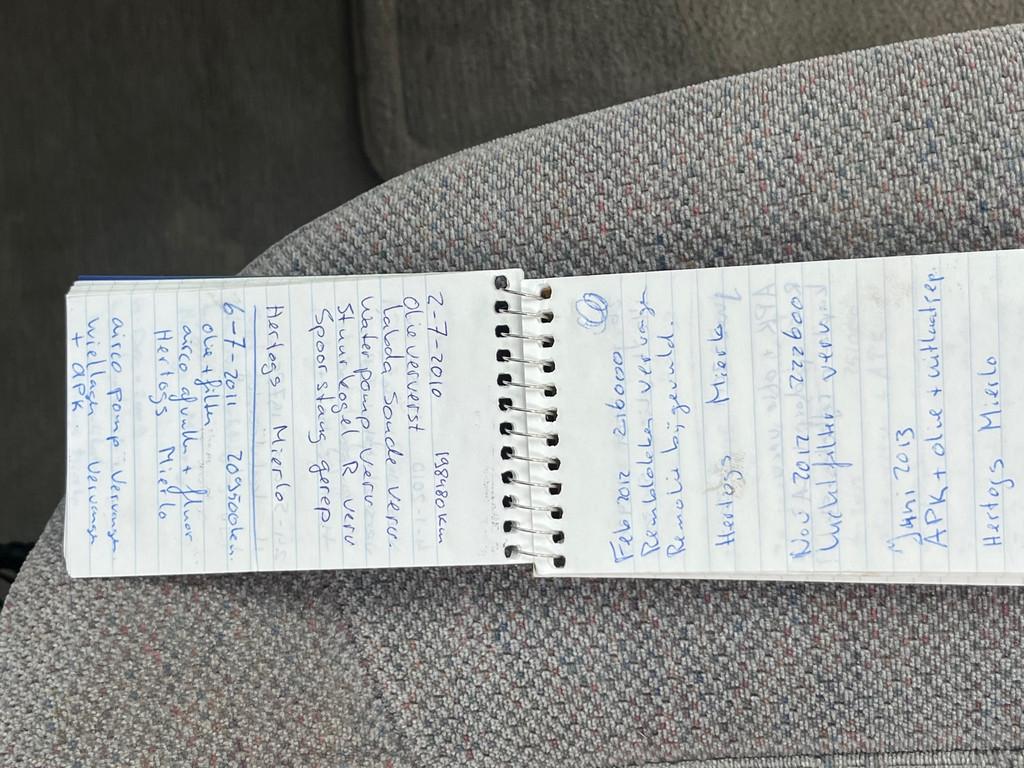 2-7-2010 198480km
olie ververst
labda Sonde verv.
Waterpomp verv
Stuurkogel R verv
Spoorstang gerep.
Hertogs Mierlo
6-7-2011 209500km
olie + filter
airco afvullen + fluor
Hertogs Mierlo
airco pomp vervangen
wiellager vervangen
+ APK
Feb 2012 216000
Remblokken vervangen
Remolie bijgevuld.
Hertogs Mierlo
Nov 2012 222600
Luchtfilter verv.
Juni 2013
APK + olie + uitlaat rep.
Hertogs Mierlo